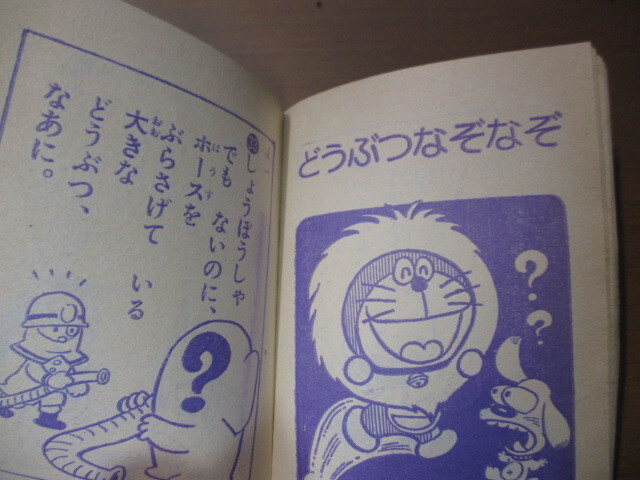 しょうぼうしゃ
でもないのに、
ホースを
ぶらさげている
大きな
どうぶつ、
なあに。
?
どうぶつなぞなぞ
? ?